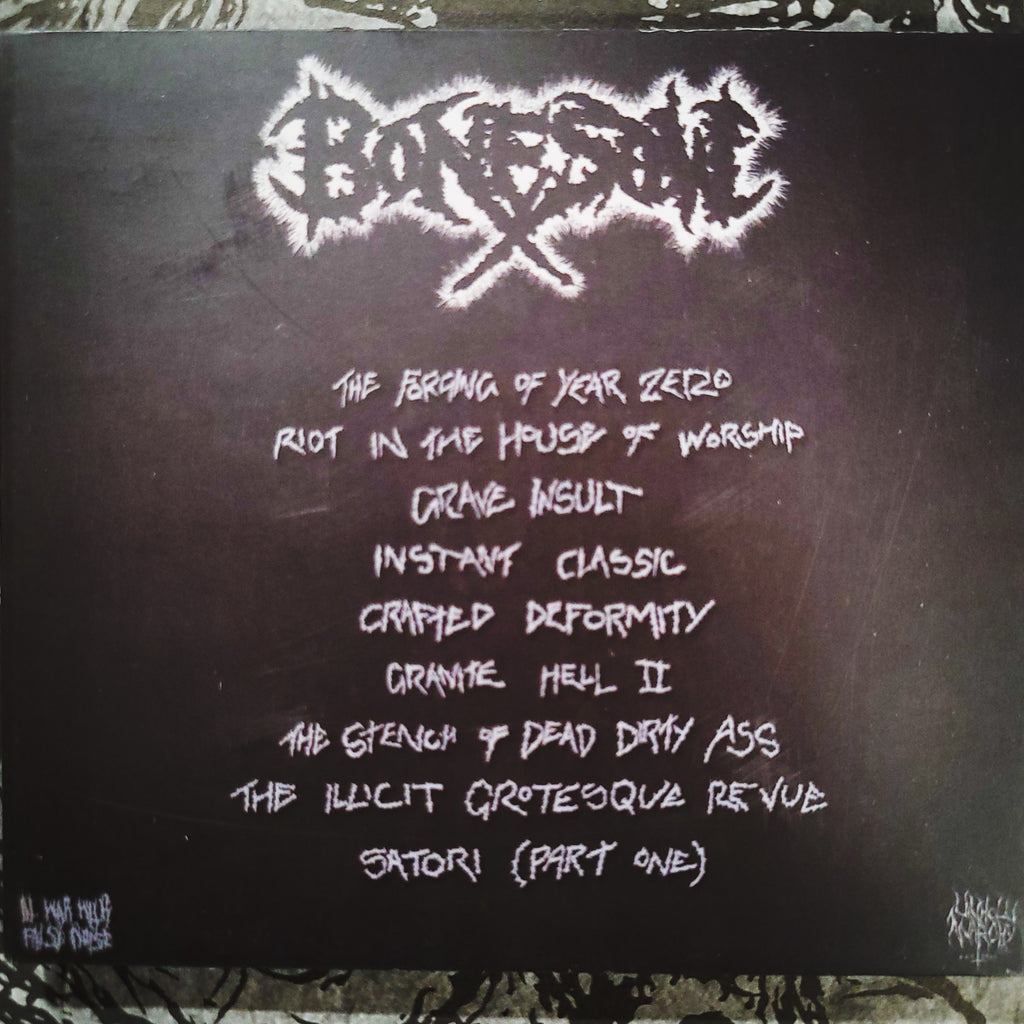 BONESAW
THE FORGING OF YEAR ZERO
RIOT IN THE HOUSE OF WORSHIP
GRAVE INSULT
INSTANT CLASSIC
CRAFTED DEFORMITY
GRANITE HELL II
THE STENCH OF DEAD DIRTY ASS
THE ILLICIT GROTESQUE REVUE
SATORI (PART ONE)
WAR WITH
FALSE NOISE
UNHOLY
ANARCHY